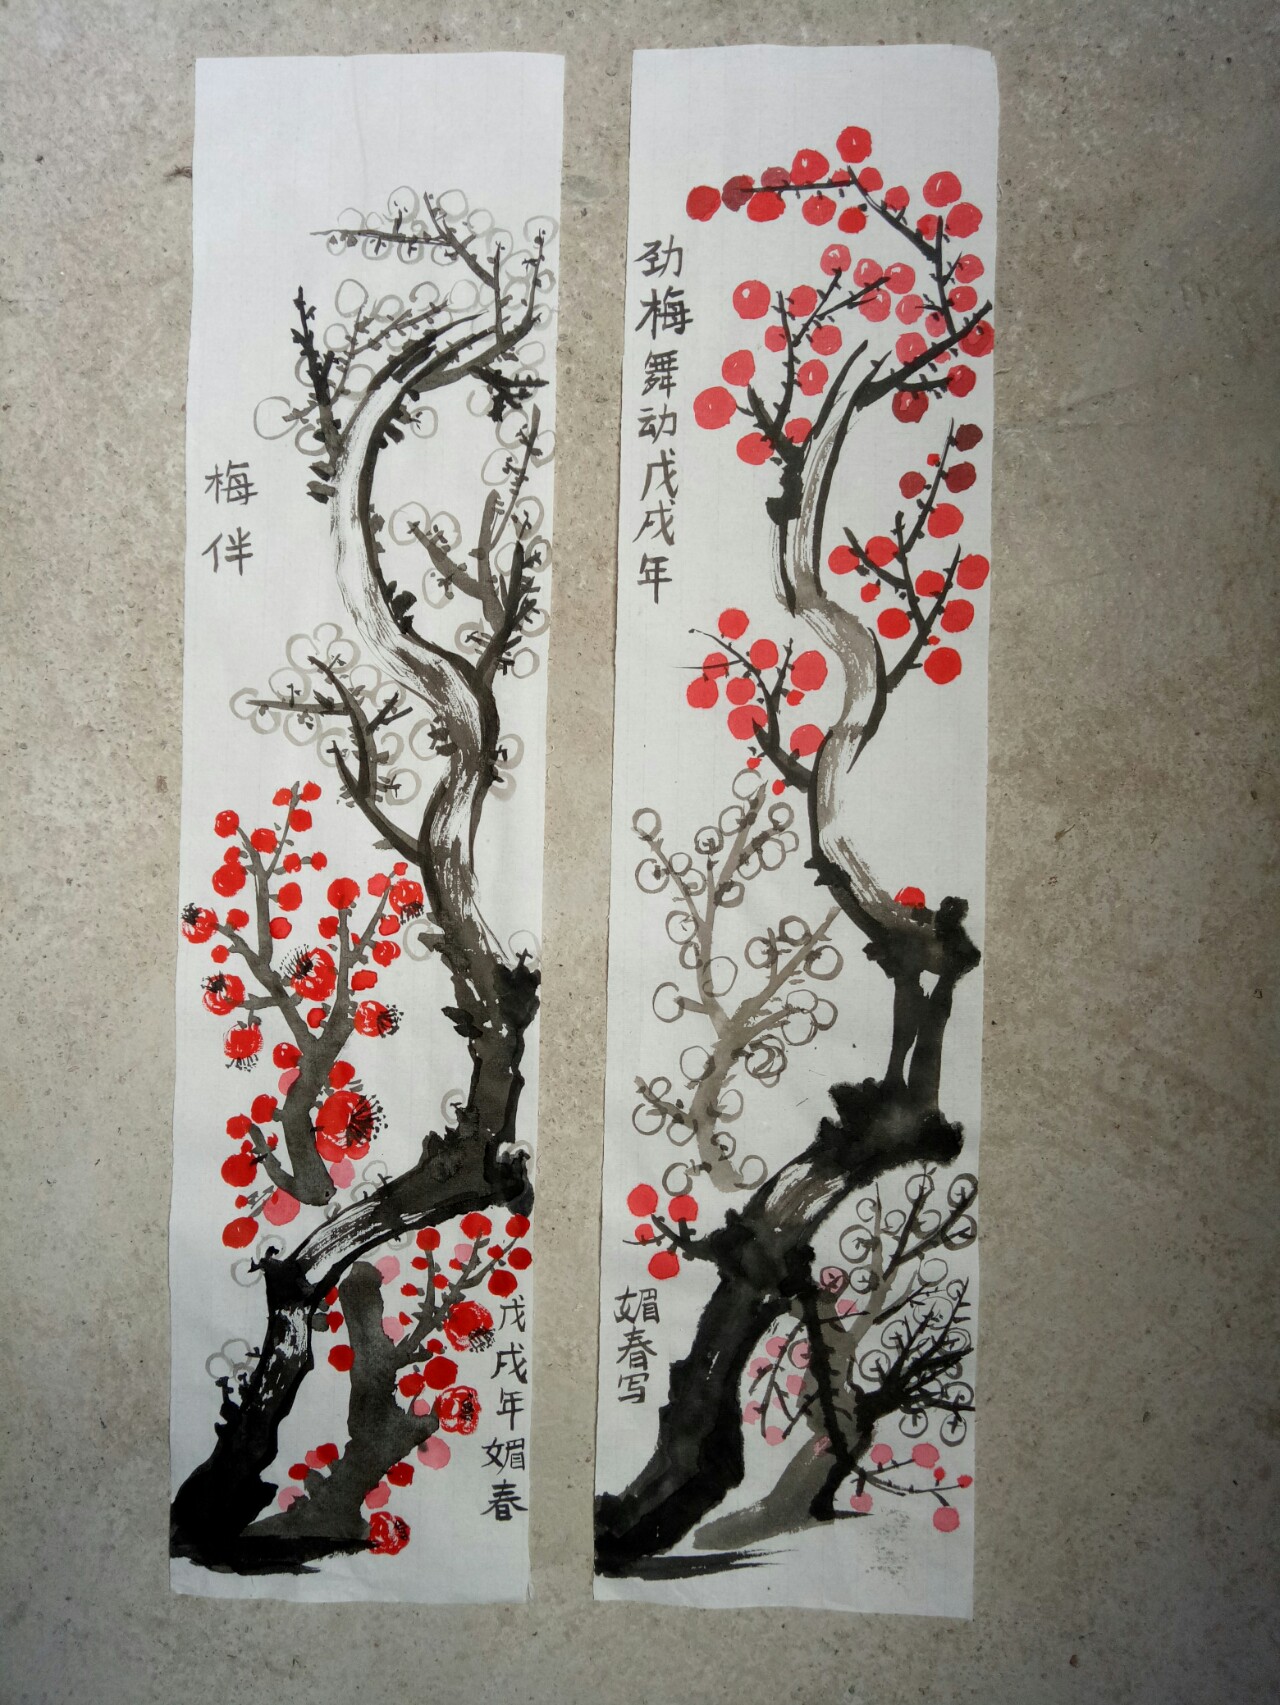 梅伴
戊戌年媚春
劲梅舞动戊戌年
媚春写